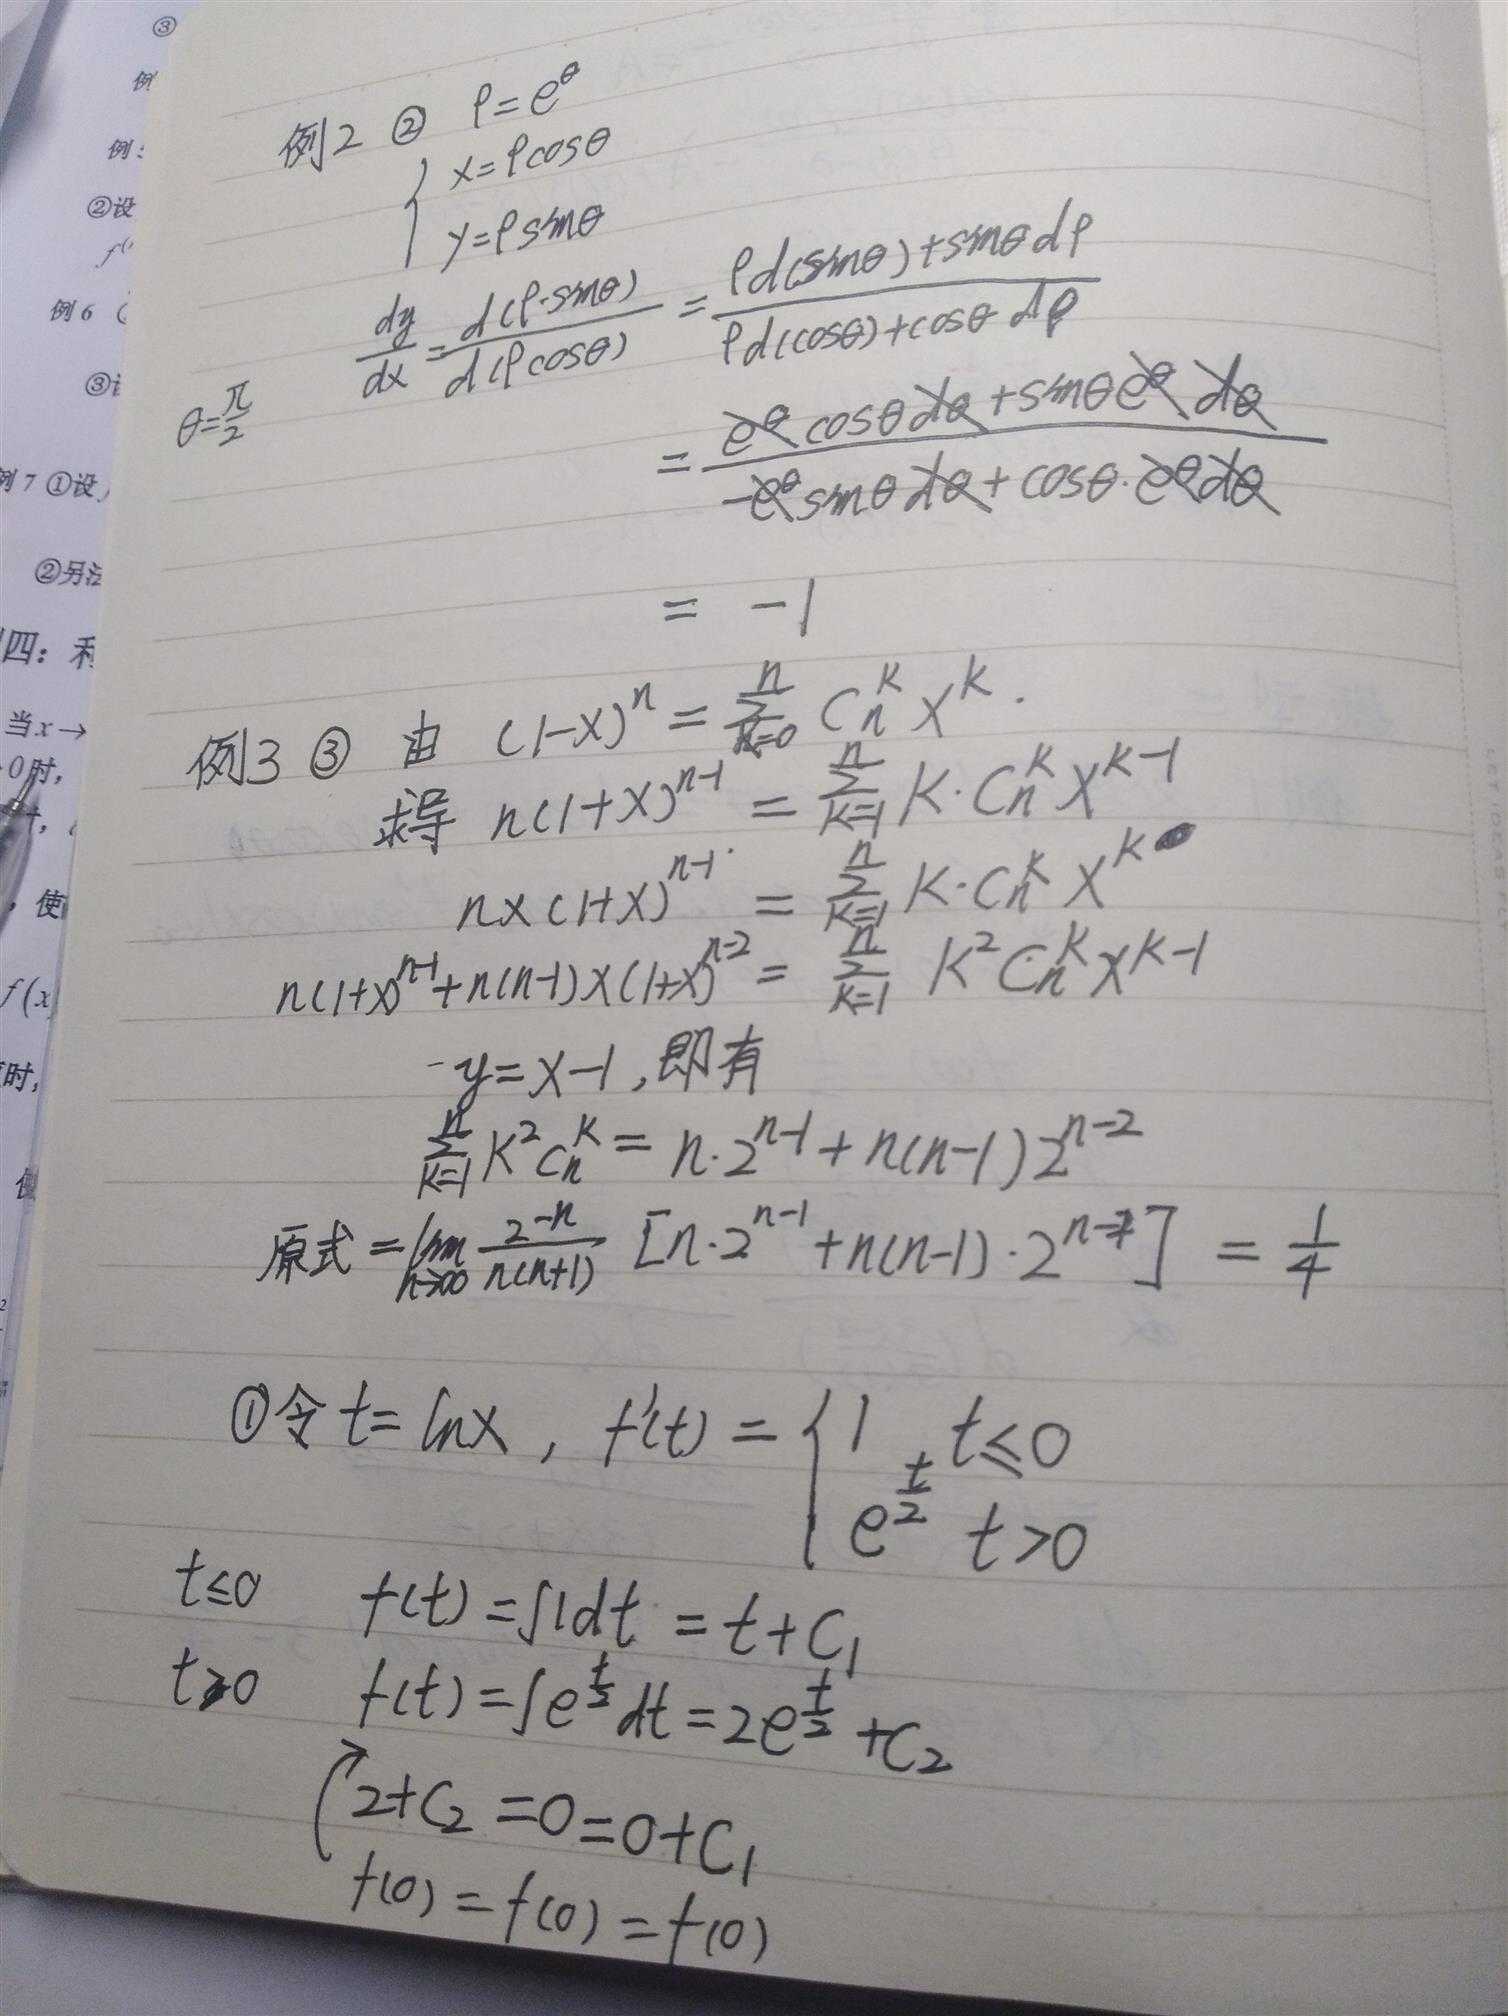 ③
例
例
②设
例6
③
例7 ①设
②另法
四：利
当x→
0时，
，使
f(x
时，
例2 ② ρ=e^θ
{ x=ρcosθ
y=ρsinθ
dy/dx = d(ρ·sinθ)/d(ρcosθ) = (ρd(sinθ)+sinθdρ)/(ρd(cosθ)+cosθdρ)
θ=π/2
= (e^θcosθdθ+sinθe^θdθ)/(-e^θsinθdθ+cosθ·e^θdθ)
= -1
例3 ③ 由 (1-x)^n = Σ_{k=0}^{n} C_n^k x^k.
求得 n(1+x)^{n-1} = Σ_{k=1}^{n} K·C_n^k x^{k-1}
nx(1+x)^{n-1} = Σ_{k=1}^{n} K·C_n^k x^k
n(1+x)^{n-1}+n(n-1)x(1+x)^{n-2} = Σ_{k=1}^{n} K^2 C_n^k x^{k-1}
-y=x-1，即有
Σ_{k=1}^{n} K^2 C_n^k = n·2^{n-1}+n(n-1)2^{n-2}
原式=lim_{n→∞} 2^{-n}/n(n+1) [n·2^{n-1}+n(n-1)·2^{n-2}] = 1/4
①令t=lnx，f'(t)={ 1 t≤0
e^{t/2} t>0
t≤0 f(t)=∫1dt=t+C_1
t>0 f(t)=∫e^{t/2}dt=2e^{t/2}+C_2
2+C_2=0=0+C_1
f(0)=f(0)=f(0)